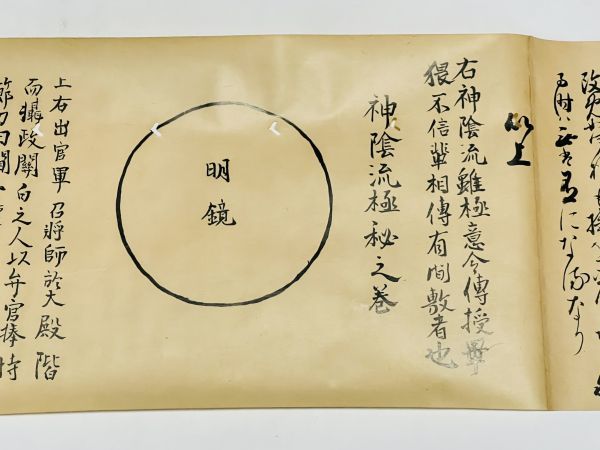 になるなり
以上
右神陰流雖極意令傳授畢
猥不信輩相傳有間敷者也
神陰流極秘之巻
明鏡
上右出官軍召將師於大殿階
而攝政關白之人以弁官捧持
節刀曰閫